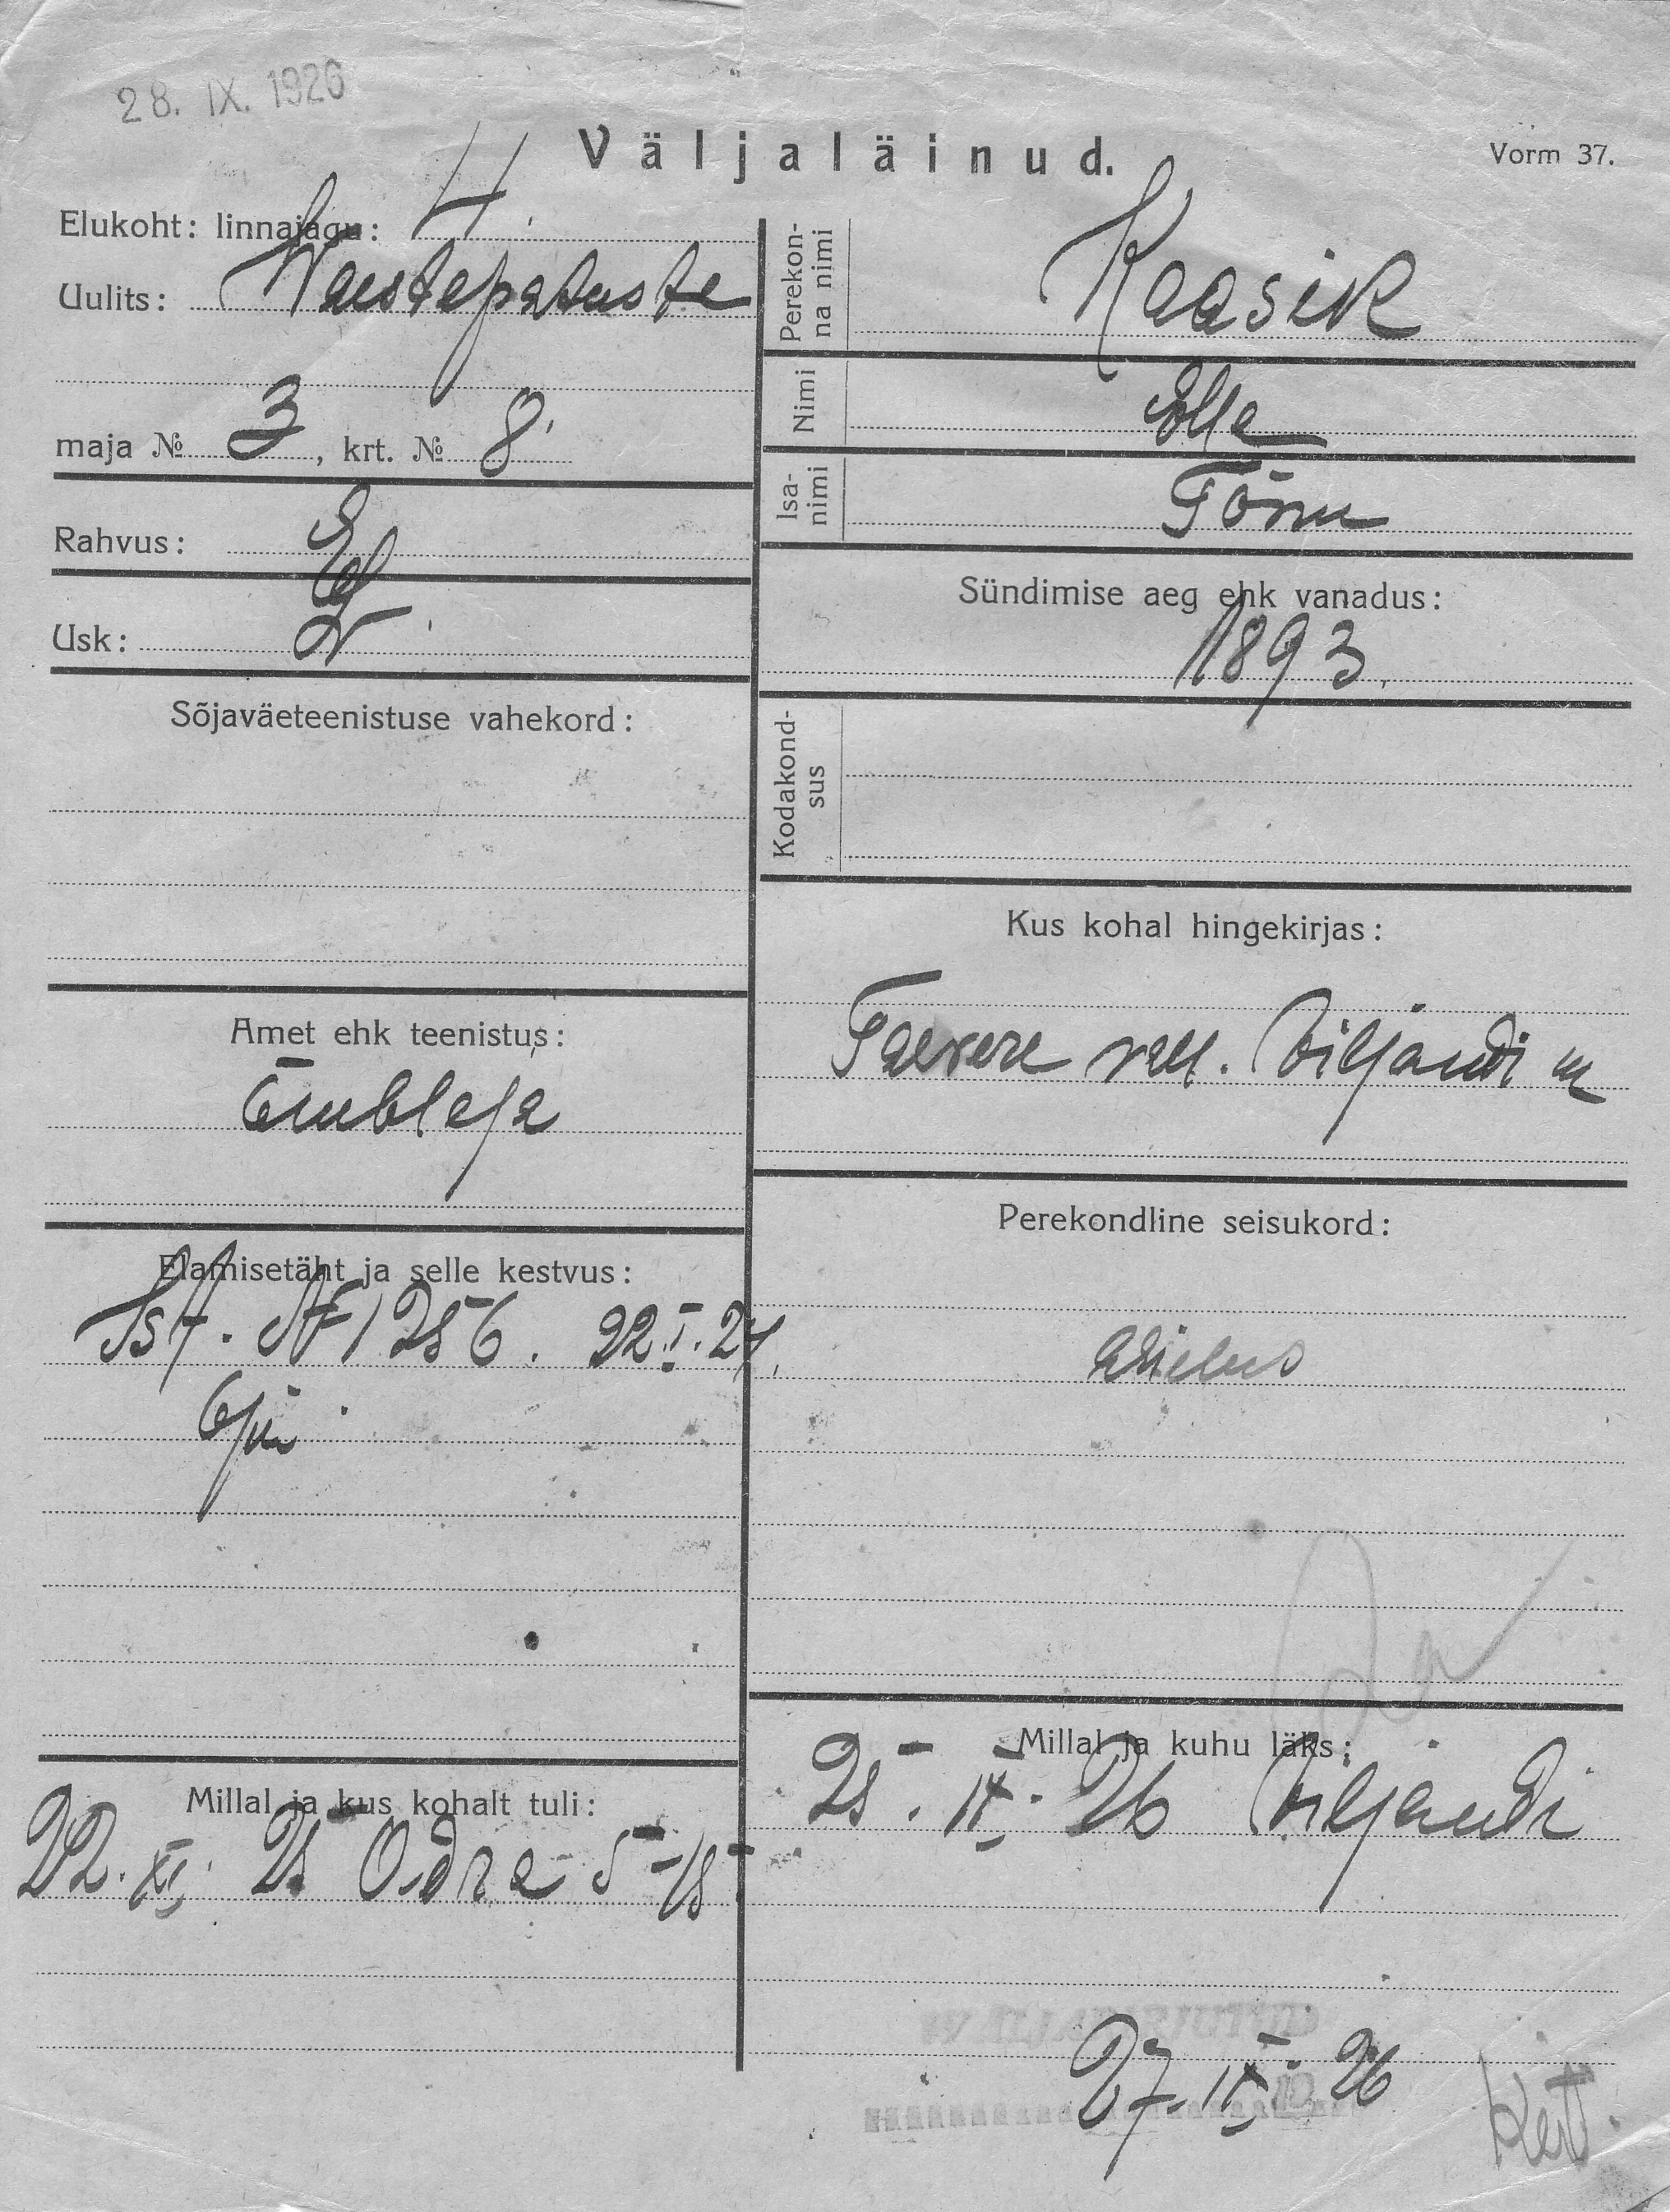 28. IX. 1926
Väljaläinud.
Vorm 37.
Elukoht: linnajagu: 4.
Uulits: Waestepatuste
maja № 3, krt. № 8.
Rahvus: E
Usk: L
Sõjaväeteenistuse vahekord:
Amet ehk teenistus:
Õmbleja
Elamisetäht ja selle kestvus:
Ist. № 1256. 22.I.24.
Millal ja kus kohalt tuli:
22. XI. 25 Odra 5-15
Perekonna nimi
Kaasik
Nimi
Ella
Isanimi
Tõnu
Sündimise aeg ehk vanadus:
1893.
Kodakondsus
Kus kohal hingekirjas:
Taevere vall. Viljandi m
Perekondline seisukord:
Millal ja kuhu läks:
25. IX. 26 Viljandi
27. IX. 26